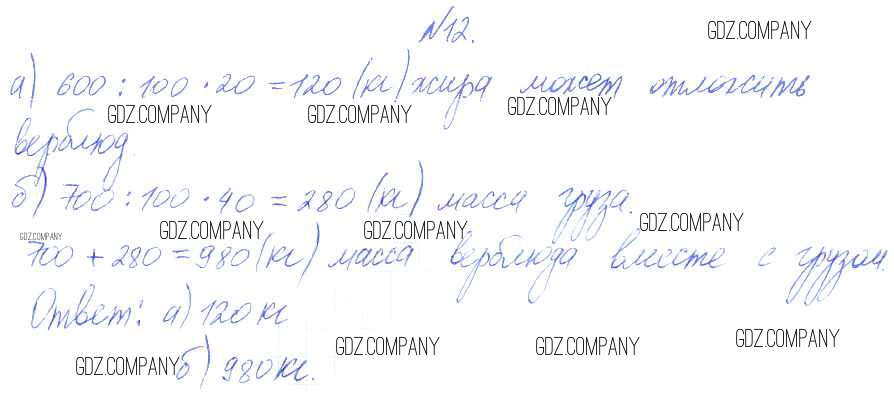 №12.
GDZ.COMPANY
а) 600 : 100 · 20 = 120 (кг) жира может отложить
GDZ.COMPANY GDZ.COMPANY GDZ.COMPANY
верблюд.
б) 700 : 100 · 40 = 280 (кг) масса груза.
GDZ.COMPANY GDZ.COMPANY GDZ.COMPANY GDZ.COMPANY
700 + 280 = 980 (кг) масса верблюда вместе с грузом.
Ответ: а) 120 кг
GDZ.COMPANY GDZ.COMPANY GDZ.COMPANY GDZ.COMPANY
б) 980 кг.